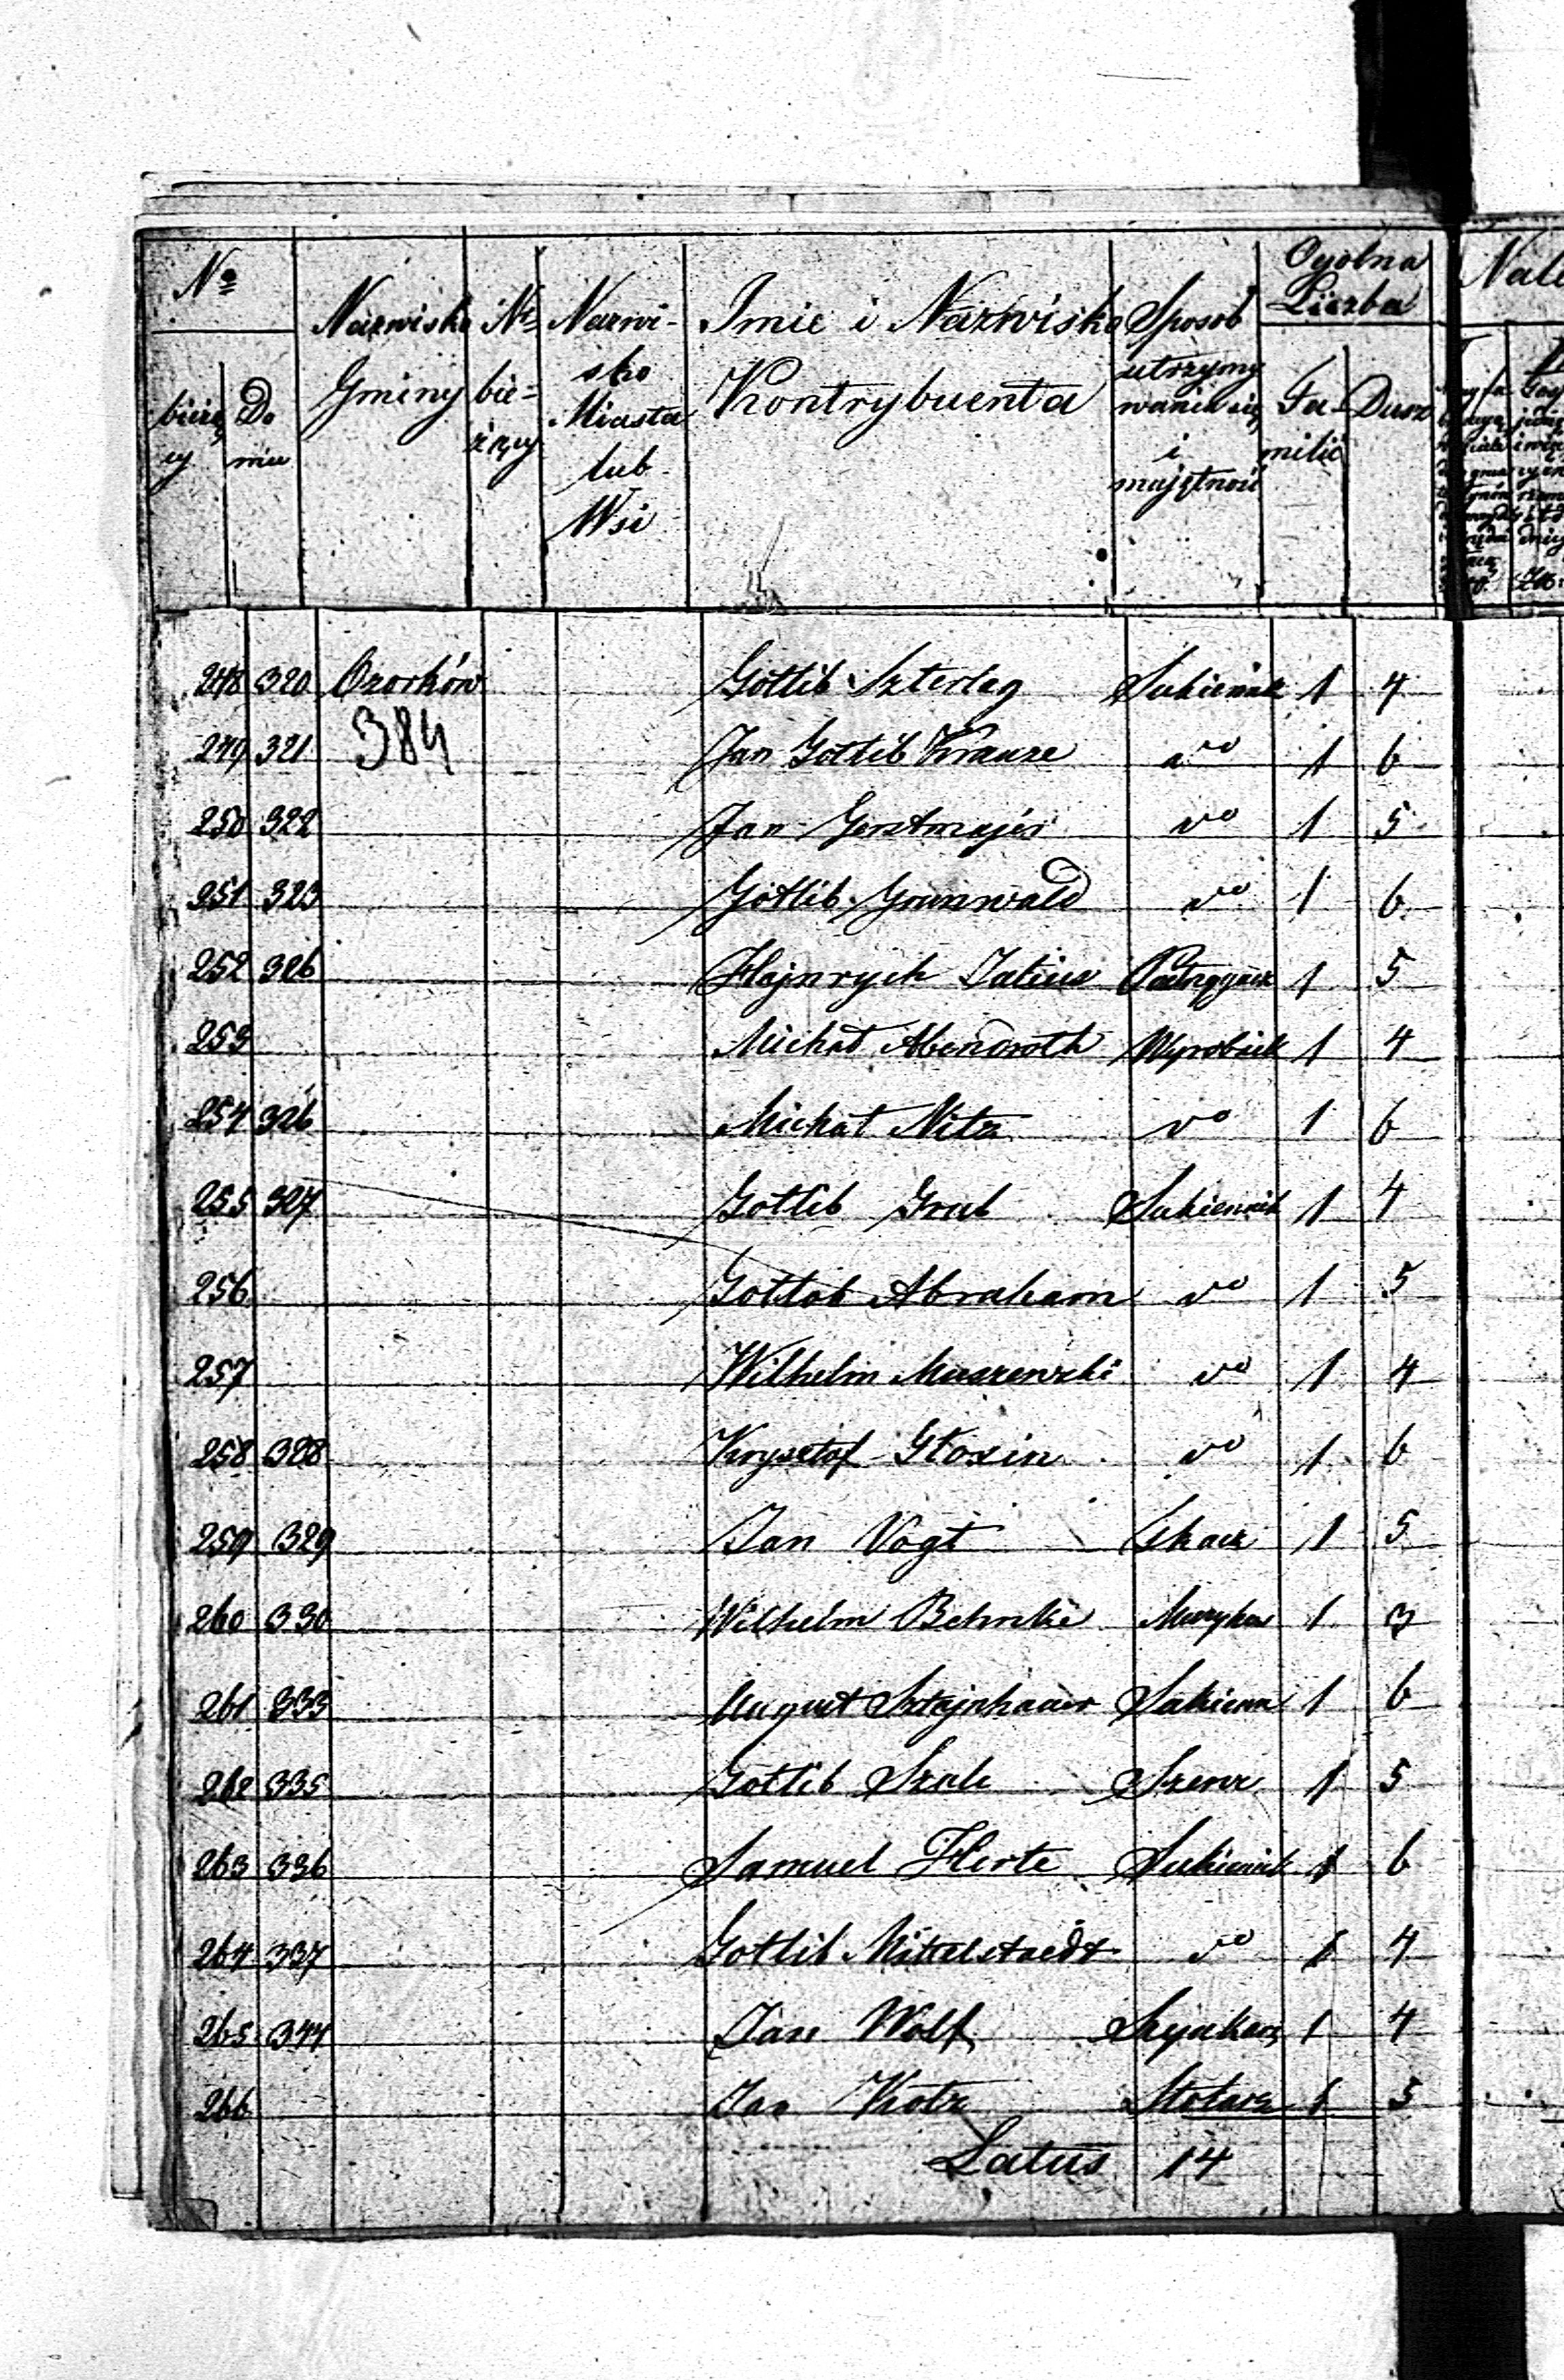 Nº
bieżą
cy
Do
mu
Nazwisko
Gminy
Nº
bie=
żący
Nazwi-
sko
Miasta
lub
Wsi
Imie i Nazwisko
Kontrybuenta
Sposob
utrzymy
wania się
i
majętność
Ogolna
Liczba
Fa-
milii
Dusz
248 320 Ozorków Gottlib Szterleg Sukiennik 1 4
384
249 321 Jan Gottlib Krauze do 1 6
250 322 Jan Gerstmajer do 1 5
251 323 Gottlib Grunwald do 1 6
252 326 Hajnrych 1 5
253 Michał Abendroth Wyrobnik 1 4
254 326 Michał Nitz do 1 6
255 327 Gottlib Grab Sukiennik 1 4
256 Gottlob Abraham do 1 5
257 Wilhelm Maszewski do 1 4
258 328 Krysztof Gloxin do 1 6
259 329 Jan Vogt Tkacz 1 5
260 330 Wilhelm Behnke Muzykus 1 3
261 333 August Sztajnhauer Sukienn 1 6
262 335 Gottlib Szulc Szewc 1 5
263 336 Samuel Herte Sukiennik 1 6
264 337 Gottlib Mittelstaedt do 1 4
265 344 Jan Wolf Szynkarz 1 4
266 Jan Kotz Stolarz 1 5
Latus 14